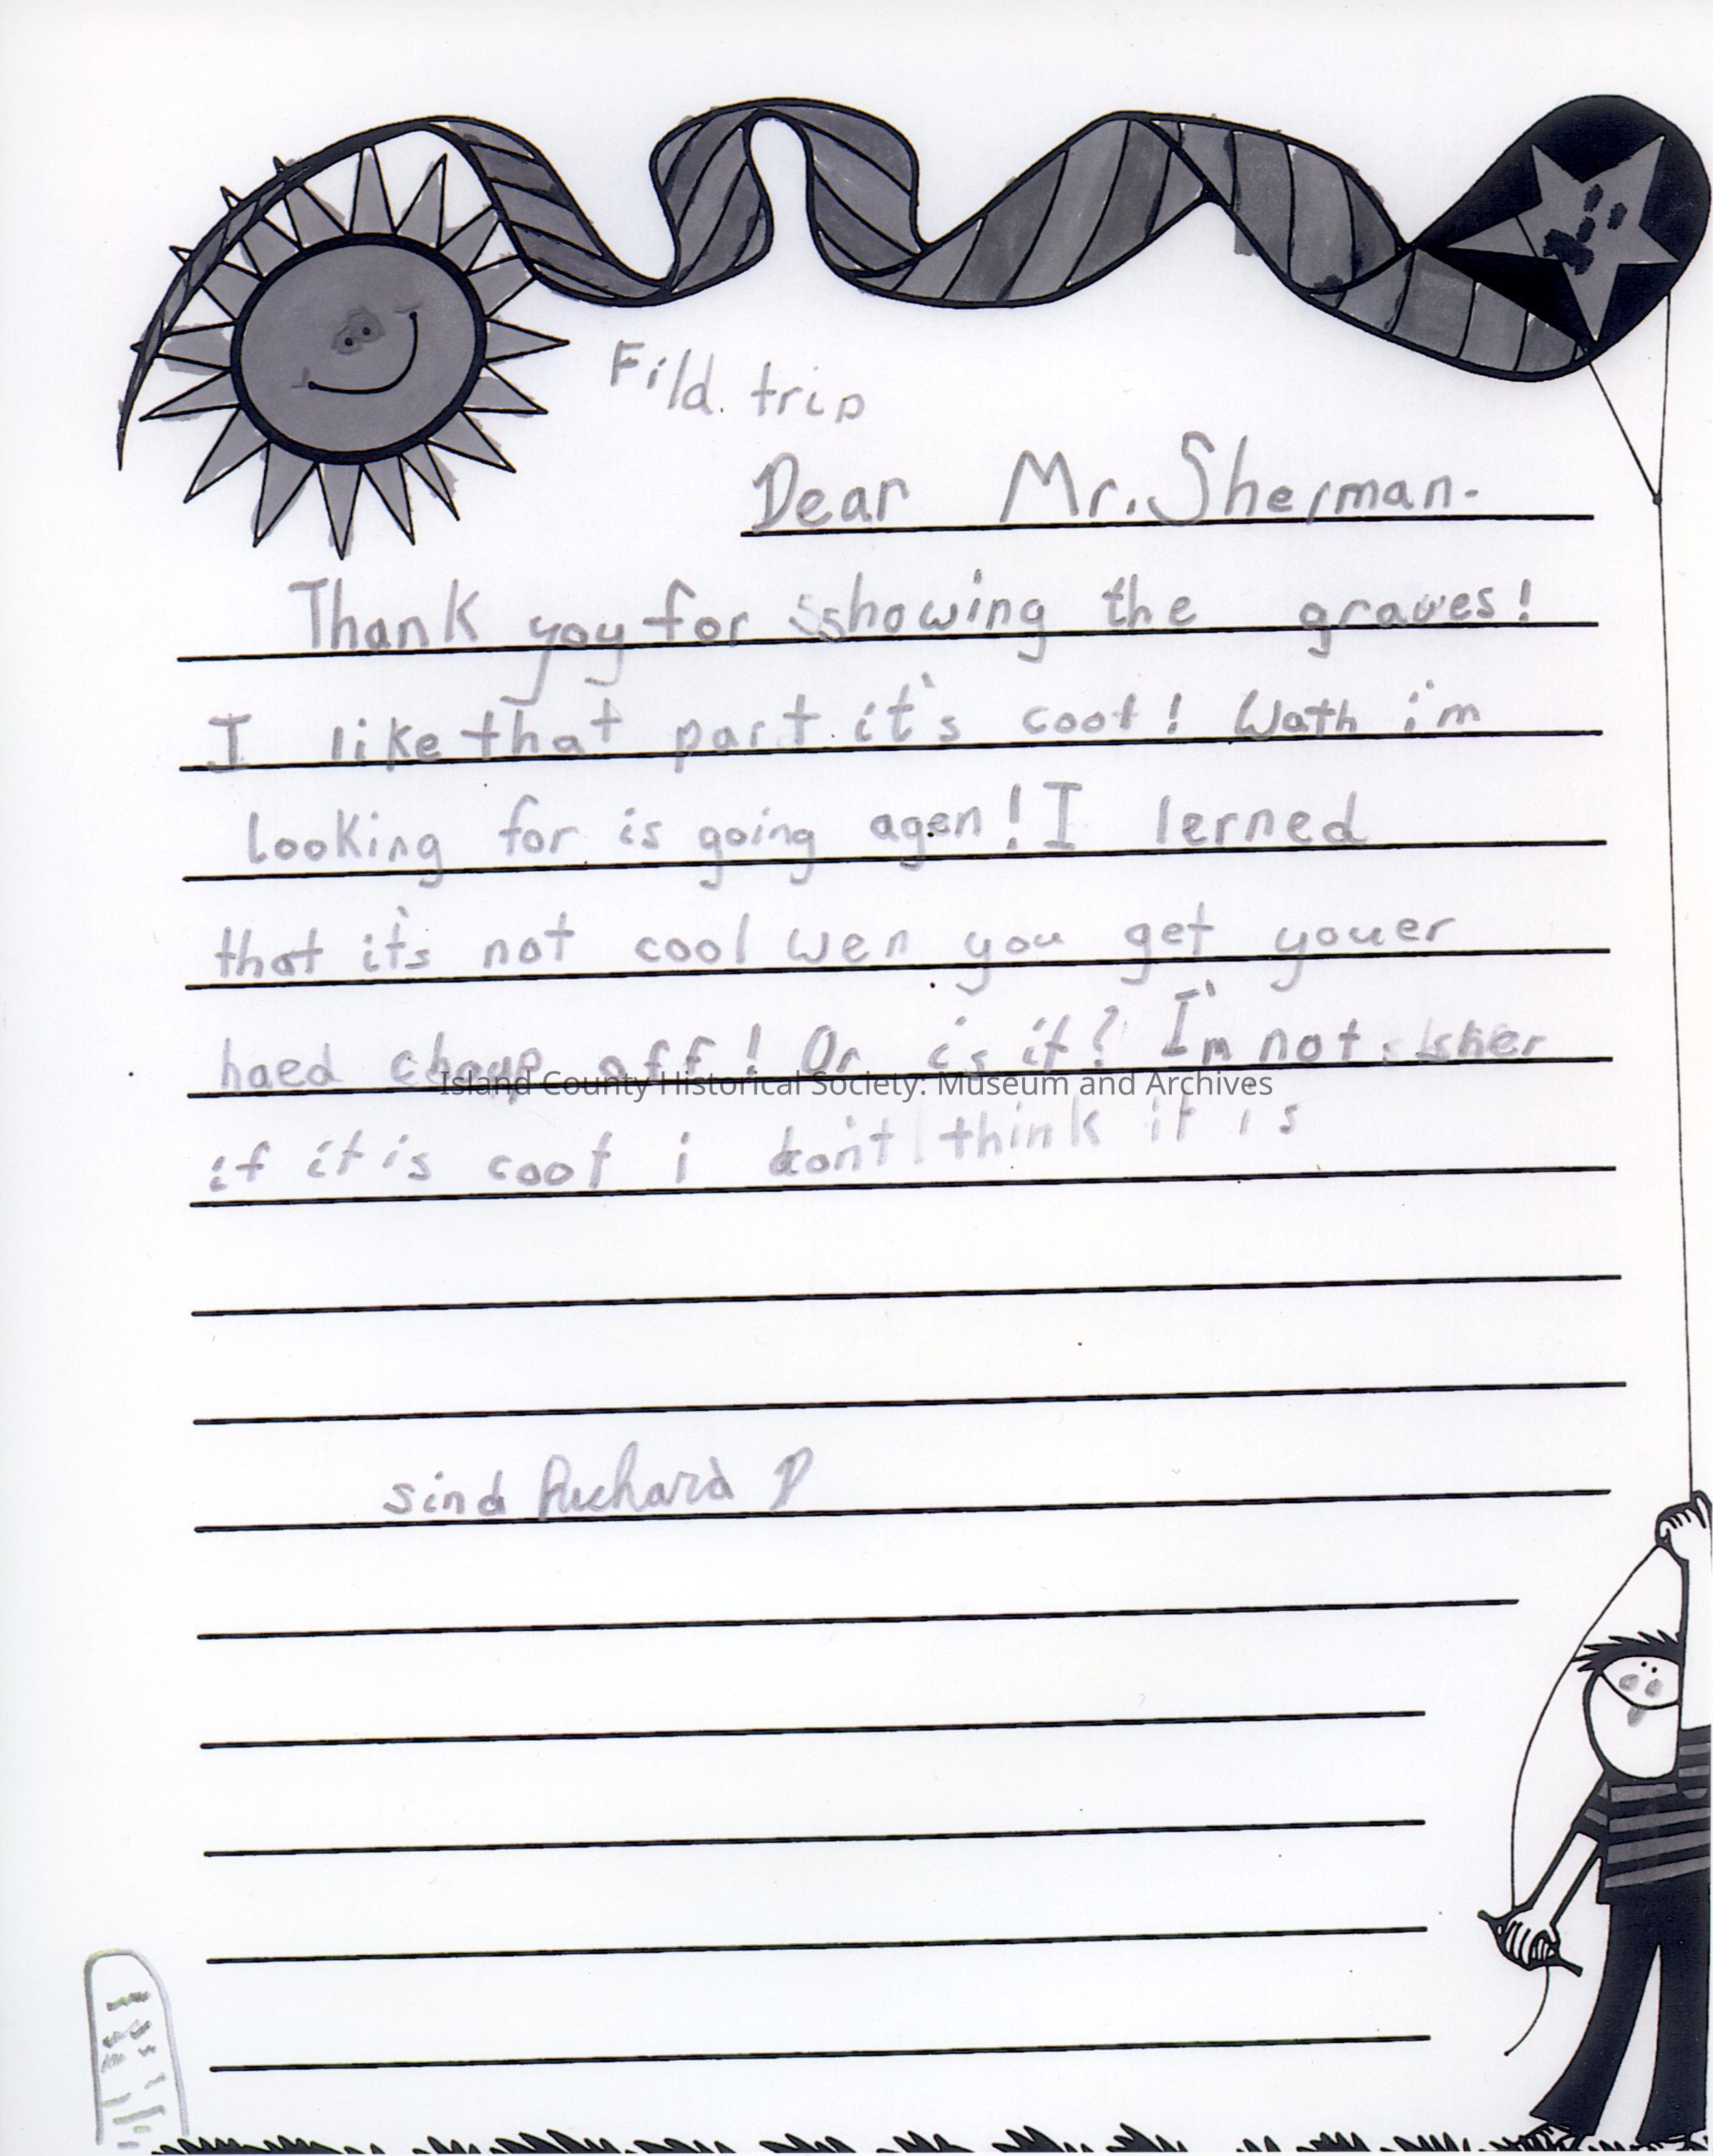 Fild. trip
Dear Mr. Sherman.
Thank yoy for sshowing the graves!
I like that part it's coot! Wath i'm
looking for is going agen! I lerned
that it's not cool wen you get youer
haed off! Or is it? I'm not sher
if it is coot i don't think it is
sind Richard D
Island County Historical Society: Museum and Archives